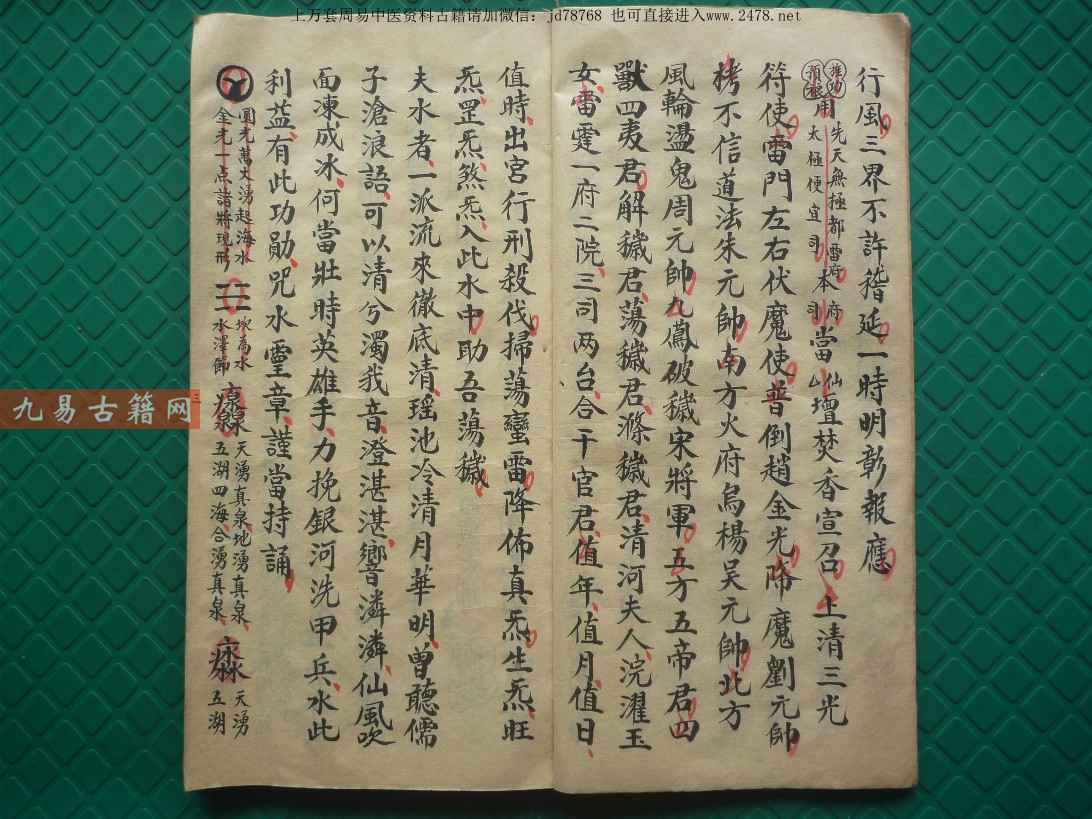 上万套周易中医资料古籍请加微信：jd78768 也可直接进入www.2478.net
行風三界不許稽延一時明彰報應
用先天無極都雷府本府太極便宜司本司當仙壇焚香宣召上清三光
符使雷門左右伏魔使普倒趙金光降魔劉元帥
栲不信道法朱元帥南方火府烏楊吳元帥北方
風輪盪鬼周元帥九鳳破穢宋將軍五方五帝君四
獸四夷君解穢君蕩穢君滌穢君清河夫人浣濯玉
女雷霆一府二院三司两台合干官君值年值月值日
值時出宮行刑殺伐掃蕩蠻雷降佈真炁生炁旺
炁罡炁煞炁入此水中助吾蕩穢
夫水者一派流來徹底清瑤池冷清月華明曾聽儒
子滄浪語可以清兮濁我音澄湛湛響潾潾仙風吹
面凍成冰何當壯時英雄手力挽銀河洗甲兵水此
利益有此功勛咒水靈章謹當持誦
圓光萬丈湧起海水
金光一点諸將現形
坎為水
水澤節
天湧真泉地湧真泉
五湖四海合湧真泉
天湧
五湖
九易古籍网